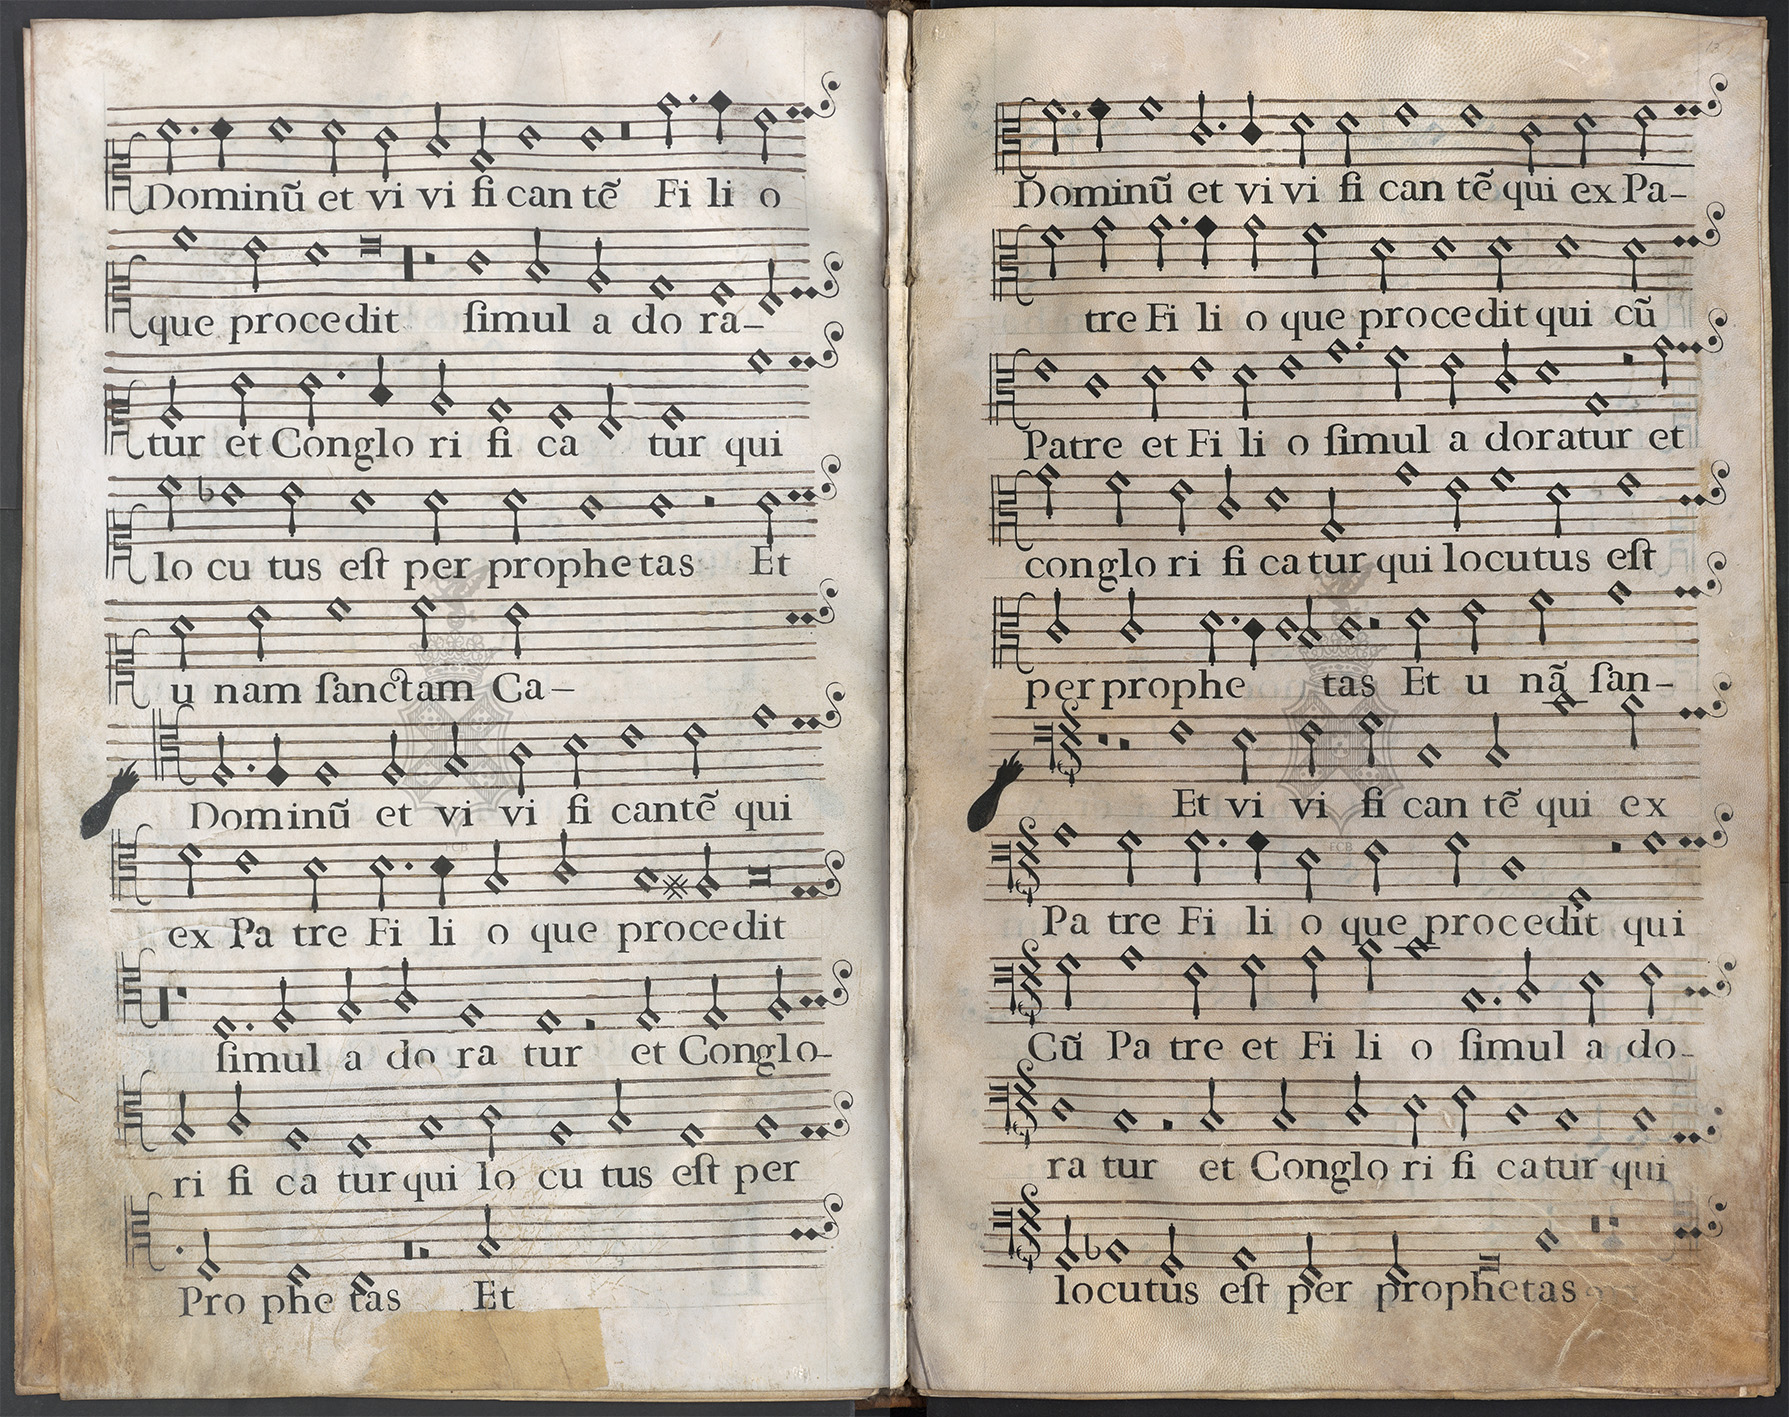 Dominũ et vi vi fi can tẽ Fi li o
que procedit ſimul a do ra-
tur et Conglo ri fi ca tur qui
lo cu tus eſt per prophetas Et
u nam ſanctam Ca-
Dominũ et vi vi fi cantẽ qui
ex Pa tre Fi li o que procedit
ſimul a do ra tur et Conglo-
ri fi ca tur qui lo cu tus eſt per
Pro phe tas Et
Dominũ et vi vi fi can tẽ qui ex Pa-
tre Fi li o que procedit qui cũ
Patre et Fi li o ſimul a doratur et
conglo ri fi ca tur qui locutus eſt
per prophe tas Et u nã ſan-
Et vi vi fi can tẽ qui ex
Pa tre Fi li o que procedit qui
Cũ Pa tre et Fi li o ſimul a do-
ra tur et Conglo ri fi catur qui
locutus eſt per prophetas
FCB
FCB